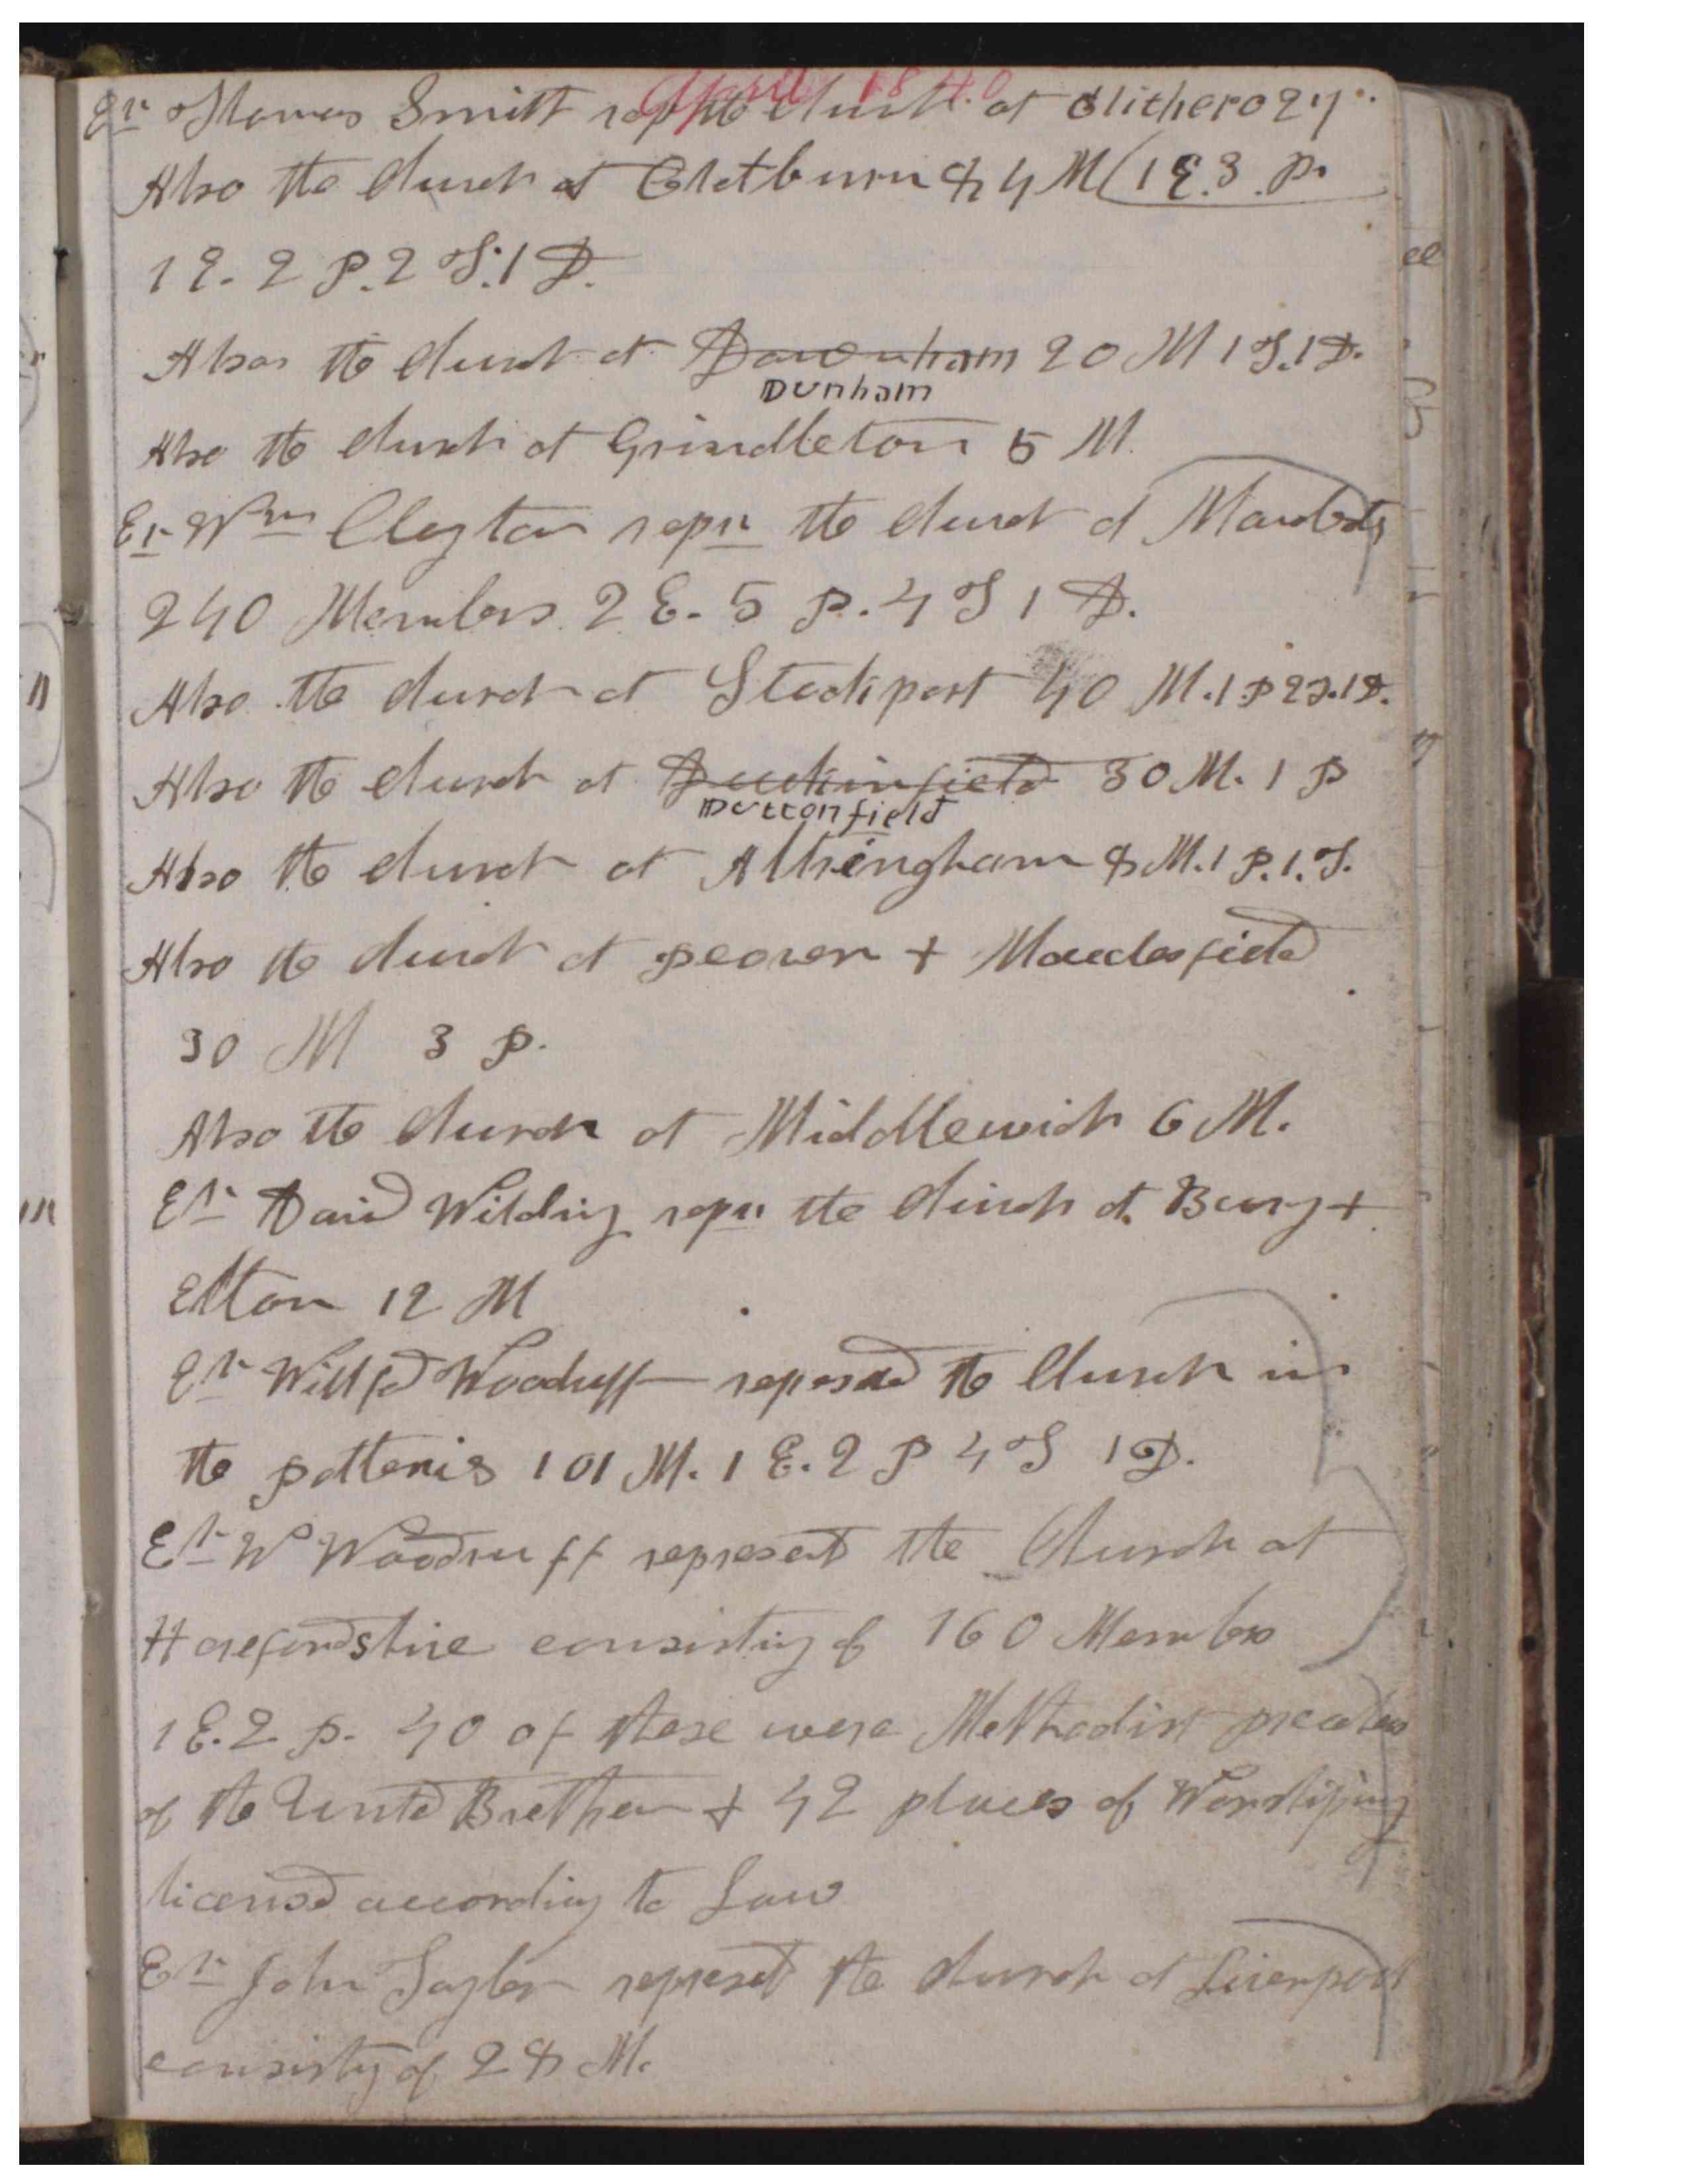 April 1840
Er Thomas Smith rep the church at Clithero 27
Also the church at Chatburn 84 M (1 E. 3 P.
1 E. 2 P. 2 T. 1 D.
Also the church at Downham 20 M 1 T. 1 D.
Dunham
Also the church at Grindleton 5 M.
Er Wm Clayton repn the church at
240 Members. 2 E. 5 P. 4 T 1 D.
Also the church at Stockport 40 M. 1 P 2 T. 1 D.
Also the church at Duckinfield 30 M. 1 P
Duttonfield
Also the church at Altringham 8 M. 1 P. 1. T.
Also the church at Peover + Macclesfield
30 M 3 P.
Also the church at Middlewich 6 M.
Er David Wilding repn the church at Bury +
Elton 12 M
Er Wilfd Woodruff represed the Church in
the potteries 101 M. 1 E. 2 P 4 T 1 D.
Er W Woodruff represend the Church at
Herefordshire consisting of 160 Members
1 E. 2 P. 40 of these were Methodist preachers
of the United Brethen + 42 places of Worshiping
licensed according to Law
Er John Taylor represed the church at Liverpool
consisty of 28 M.